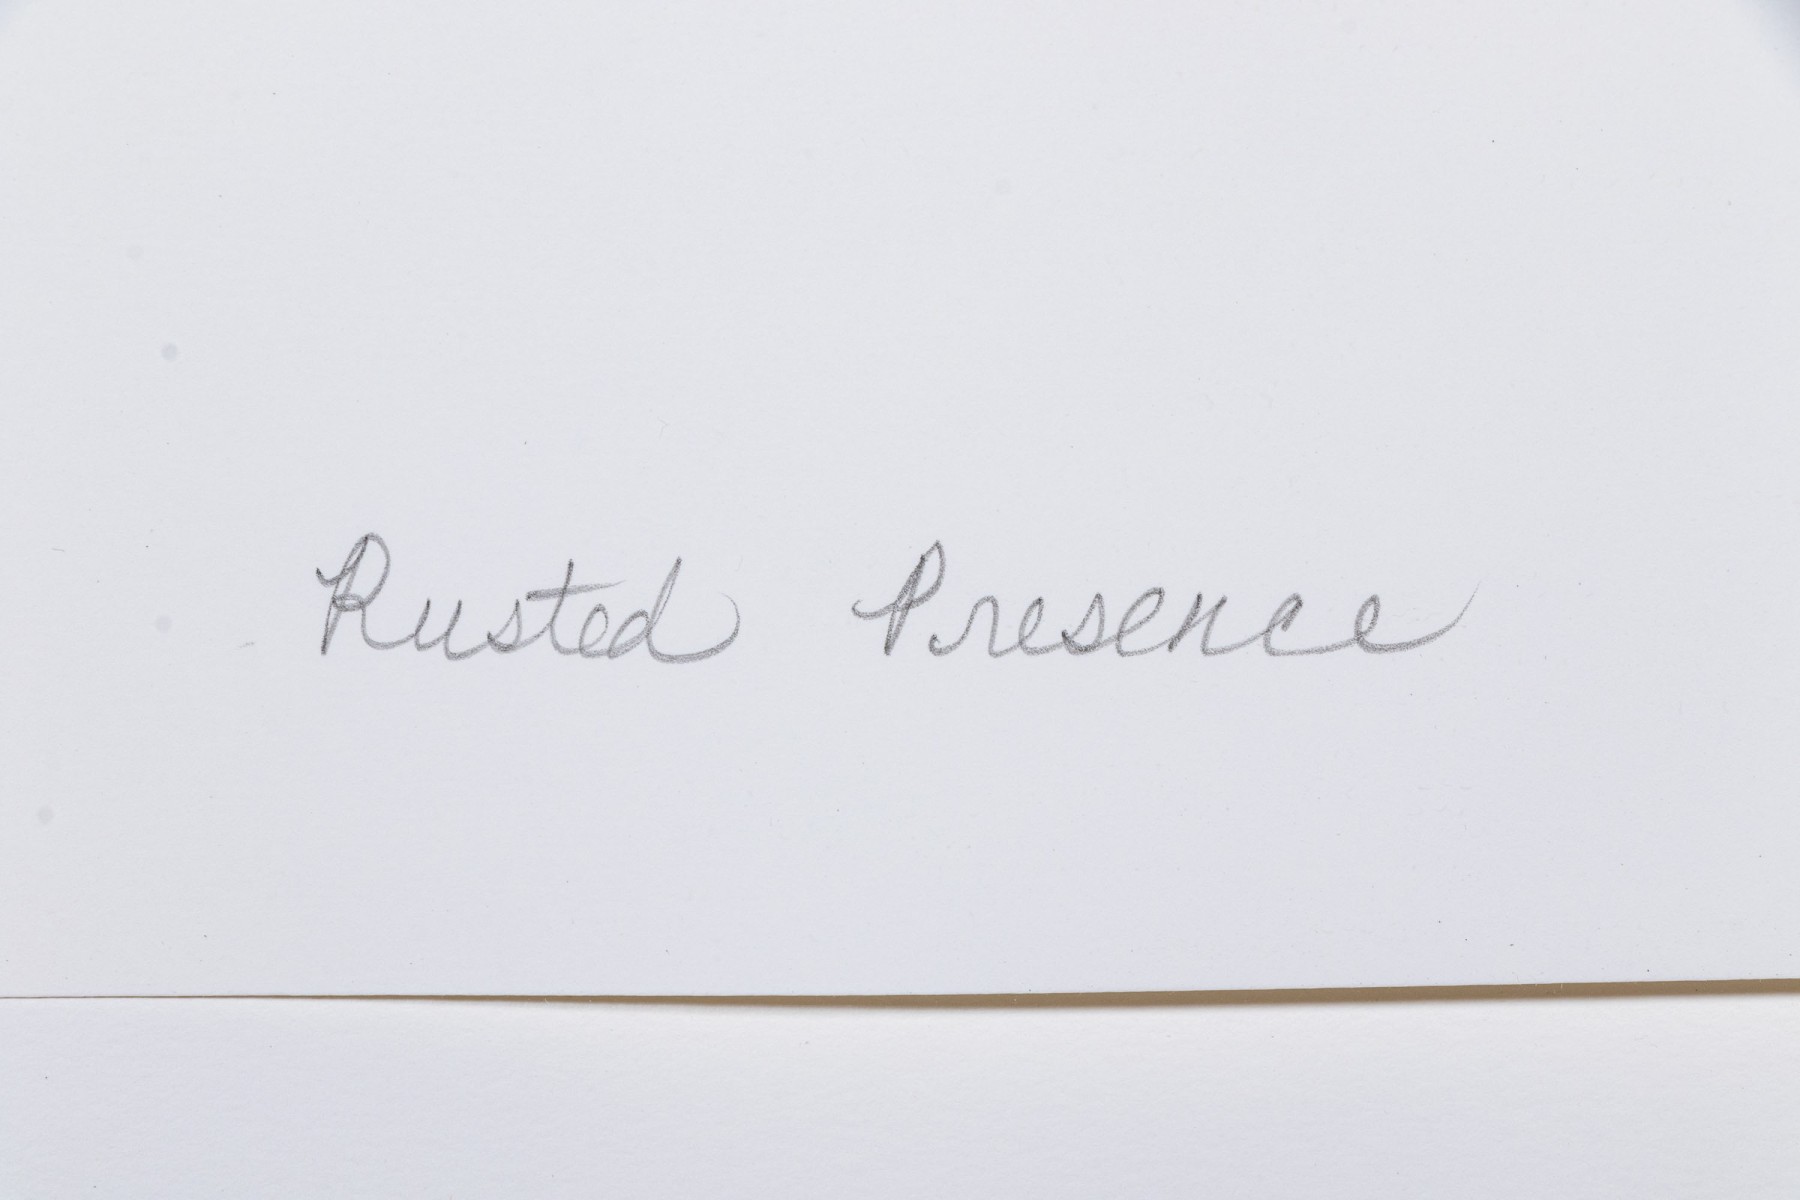 Rusted Presence